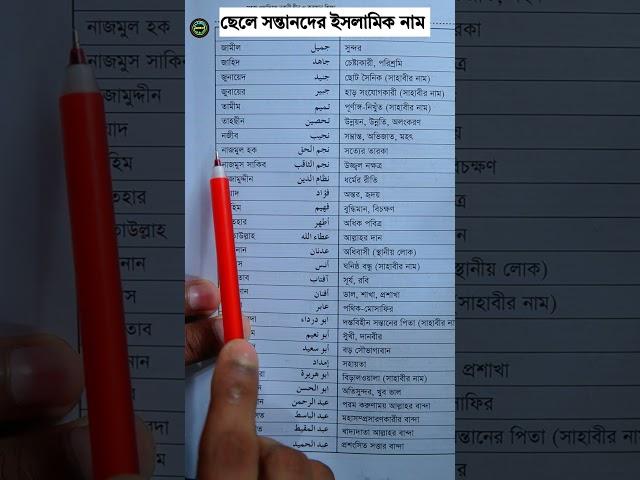 ছেলে সন্তানদের ইসলামিক নাম
জামীল جميل সুন্দর
জাহিদ جاهد চেষ্টাকারী, পরিশ্রমি
জুনায়েদ جنيد ছোট সৈনিক (সাহাবীর নাম)
জুবায়ের جبير হাড় সংযোগকারী (সাহাবীর নাম)
তামীম تميم পূর্ণাঙ্গ-নিখুঁত (সাহাবীর নাম)
তাহছীন تحصين উন্নয়ন, উন্নতি, অলংকরণ
নজীব نجيب সম্ভ্রান্ত, অভিজাত, মহৎ
নাজমুল হক نجم الحق সত্যের তারকা
নাজমুস সাকিব نجم الثاقب উজ্জ্বল নক্ষত্র
জামুদ্দীন نظام الدين ধর্মের রীতি
য়াদ فؤاد অন্তর, হৃদয়
হিম فهيم বুদ্ধিমান, বিচক্ষণ
তহার أطهر অধিক পবিত্র
তাউল্লাহ عطاء الله আল্লাহর দান
নান عدنان অধিবাসী (স্থানীয় লোক)
স أنس ঘনিষ্ঠ বন্ধু (সাহাবীর নাম)
তাব آفتاب সূর্য, রবি
নান أفنان ডাল, শাখা, প্রশাখা
عابر পথিক-মোসাফির
রদা أبو درداء দন্তবিহীন সন্তানের পিতা (সাহাবীর নাম
ম أبو نعيم সুখী, দানবীর
أبو سعيد বড় সৌভাগ্যবান
إمداد সহায়তা
أبو هريرة বিড়ালওয়ালা (সাহাবীর নাম)
أبو الحسن অতিসুন্দর, খুব ভাল
عبد الرحمن পরম করুণাময় আল্লাহর বান্দা
عبد الباسط মহাসম্প্রসারণকারীর বান্দা
عبد المقيط খাদ্যদাতা আল্লাহর বান্দা
عبد الحميد প্রশংসিত সত্তার বান্দা